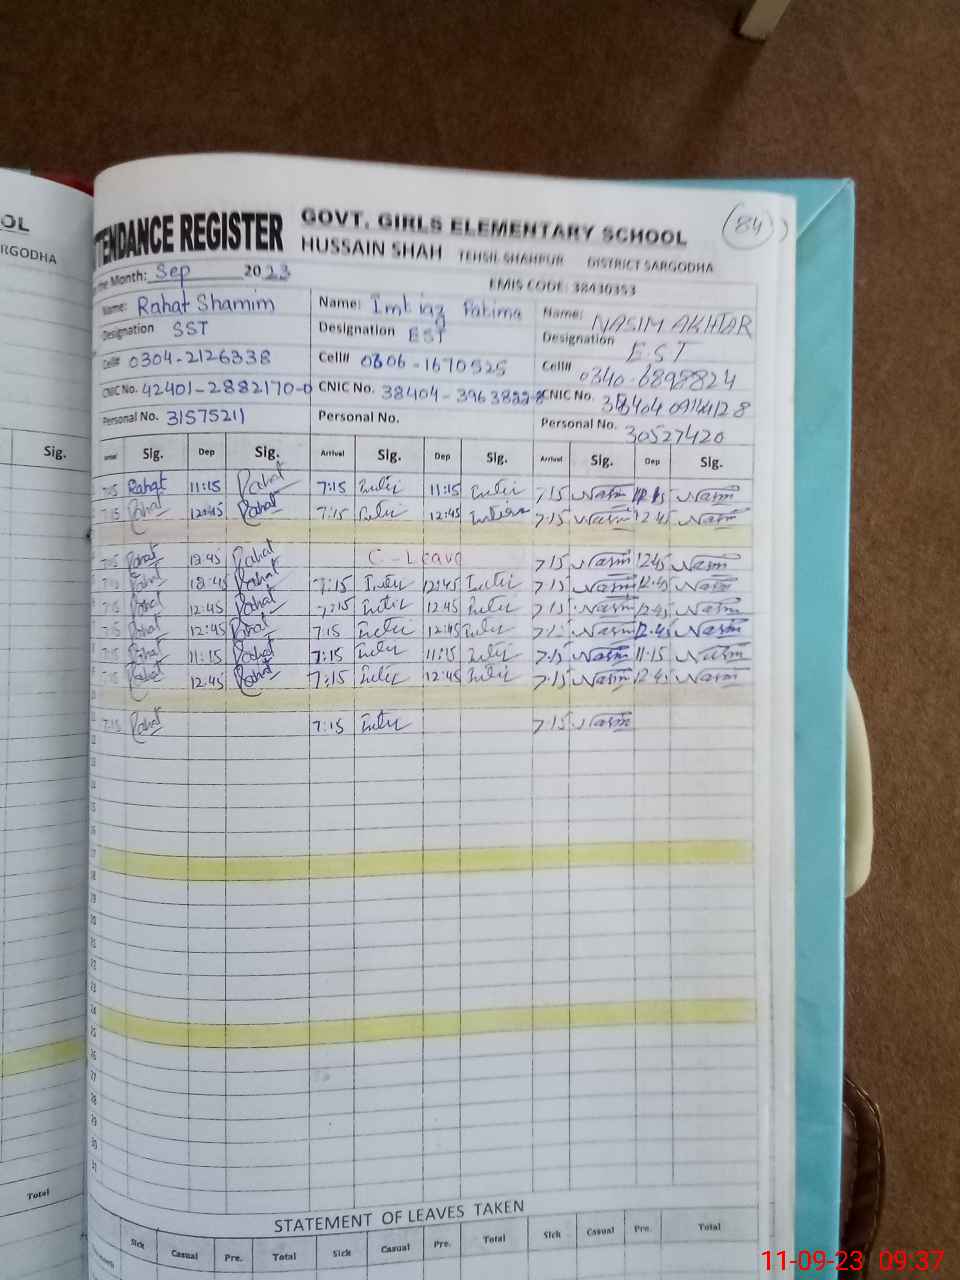 OL
RGODHA
Sig.
Total
(84)
TENDANCE REGISTER GOVT. GIRLS ELEMENTARY SCHOOL
HUSSAIN SHAH TEHSIL SHAHPUR DISTRICT SARGODHA
EMIS CODE: 38430353
Month: Sep 2023
Name: Rahat Shamim Name: Imtiaz Fatima Name: NASIM AKHTAR
Designation SST Designation EST Designation E.ST
Cell# 0304-2126338 Cell# 0306-1670525 Cell# 0340-6898824
CNIC No. 42401-2882170-0 CNIC No. CNIC No.
Personal No. 31575211 Personal No. Personal No. 30527420
Sig. Dep Sig. Arrival Sig. Dep Sig. Arrival Sig. Dep Sig.
7:15 Rahat 11:15 Rahat 7:15 11:15 7:15 Nasim Nasim
7:15 Rahat 12:45 Rahat 7:15 12:45 7:15 Nasim 12:45 Nasim
7:15 Rahat 12:45 Rahat C-Leave 7:15 Nasim 12:45 Nasim
7:15 Rahat 12:45 Rahat 7:15 12:45 7:15 Nasim 12:45 Nasim
7:15 Rahat 12:45 Rahat 7:15 12:45 7:15 Nasim 12:45 Nasim
7:15 Rahat 12:45 Rahat 7:15 12:45 7:15 Nasim 12:45 Nasim
7:15 Rahat 11:15 Rahat 7:15 11:15 7:15 Nasim 11:15 Nasim
7:15 Rahat 12:45 Rahat 7:15 12:45 7:15 Nasim 12:45 Nasim
7:15 Rahat 7:15 7:15 Nasim
12
13
14
15
16
17
18
19
20
21
22
23
24
25
26
27
28
29
30
31
STATEMENT OF LEAVES TAKEN
Sick Casual Pre. Total Sick Casual Pre. Total Sick Casual Pre. Total
11-09-23 09:37